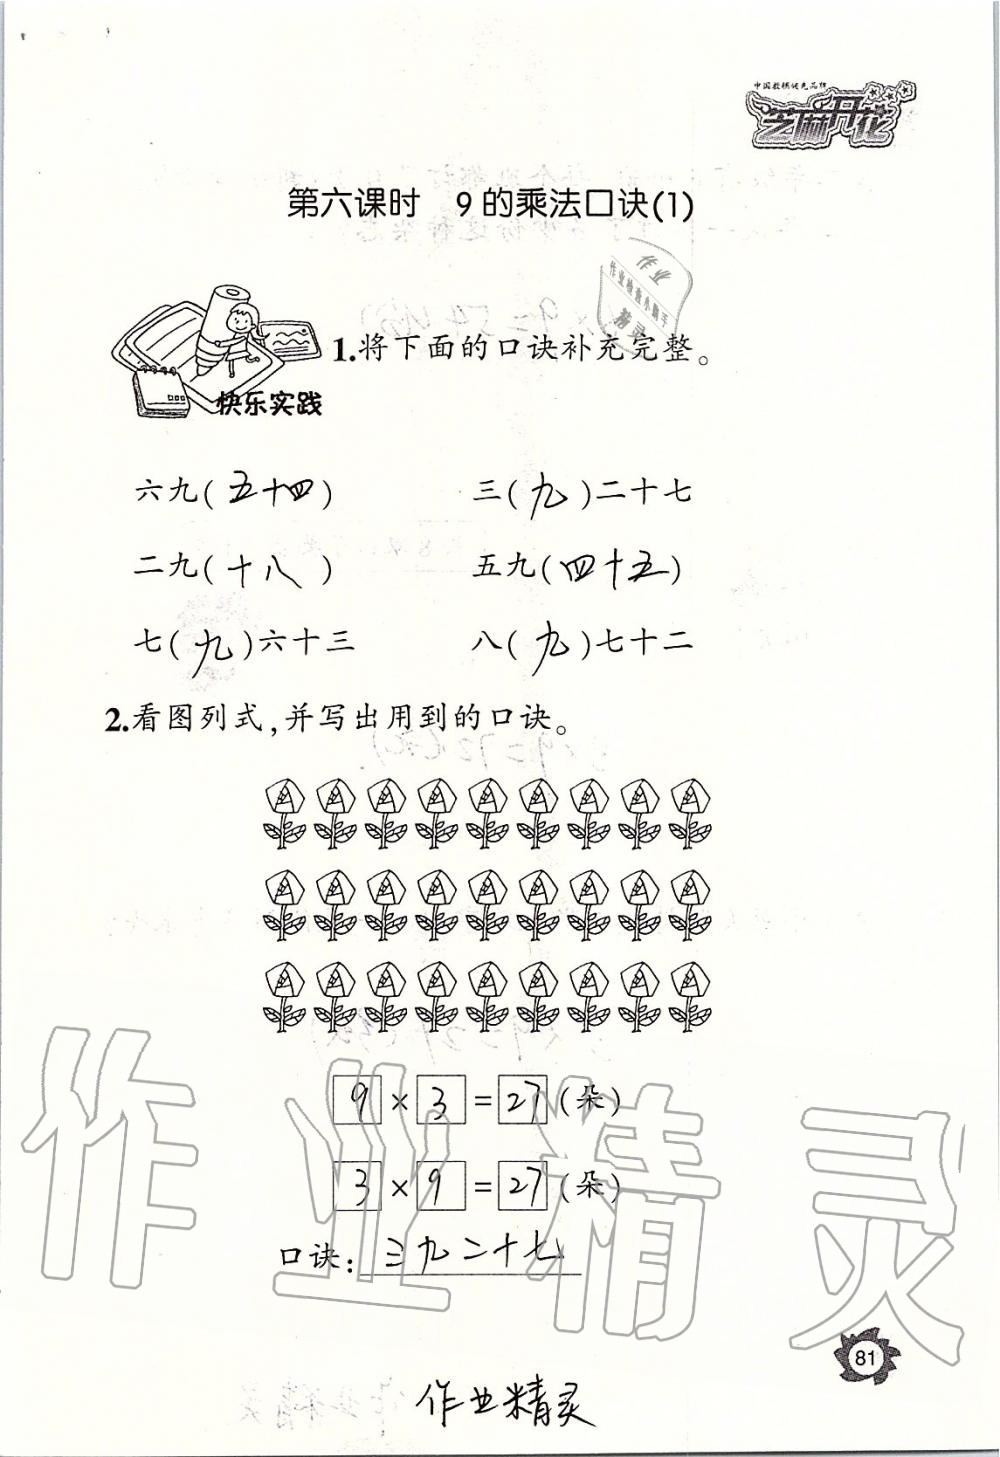 中国教辅优先品牌
芝麻开花
第六课时 9的乘法口诀(1)
作业
作业检查小助手
精灵
快乐实践
1.将下面的口诀补充完整。
六九(五十四) 三(九)二十七
二九(十八) 五九(四十五)
七(九)六十三 八(九)七十二
2.看图列式,并写出用到的口诀。
9 × 3 = 27 (朵)
3 × 9 = 27 (朵)
口诀:三九二十七
作业精灵
81
作业精灵